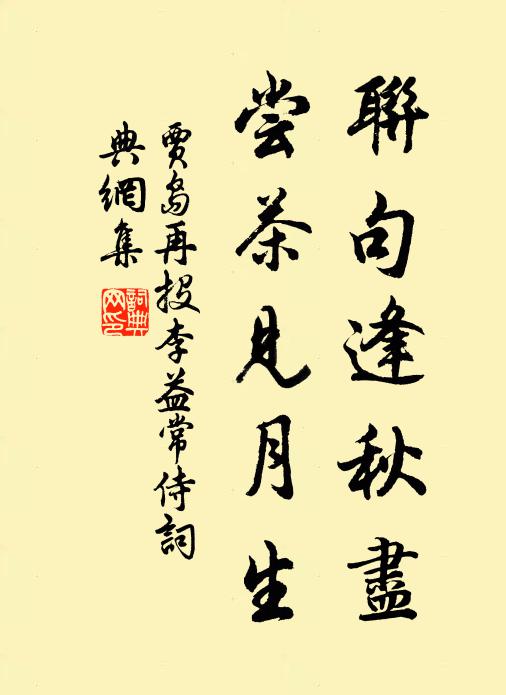 聯句逢秋盡
嘗茶見月生
賈島再投李益常侍詞
典網集
詞典網印